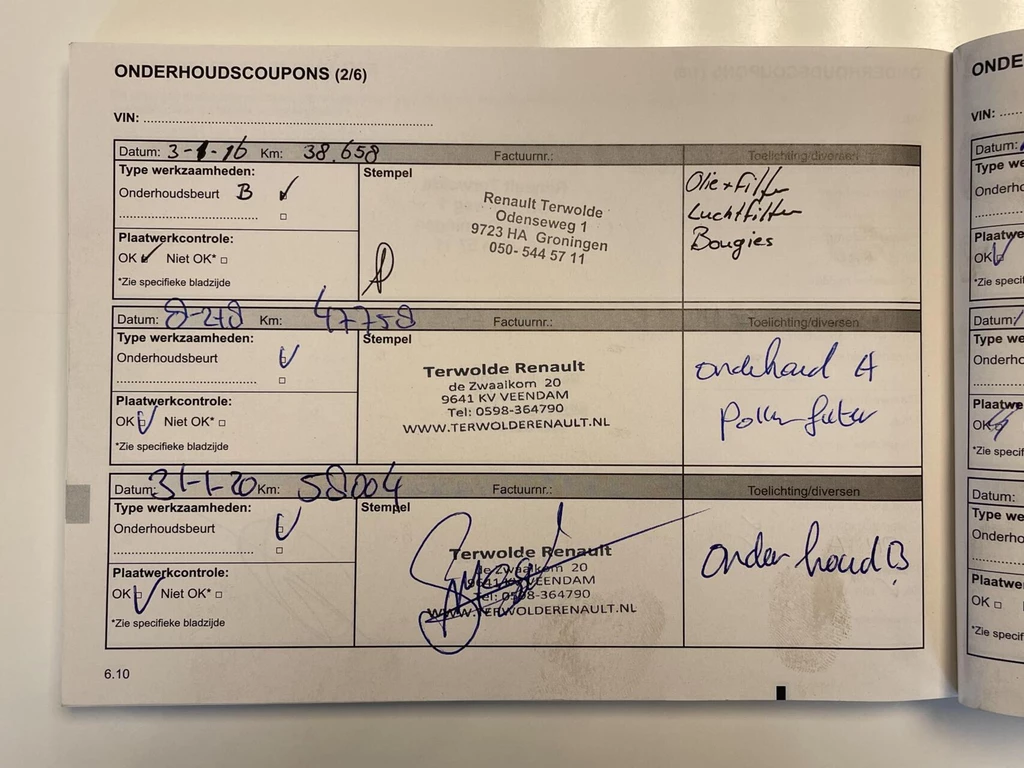 ONDERHOUDSCOUPONS (2/6)
VIN:
Datum: 3-1-16 Km: 38.658 Factuurnr.: Toelichting/diversen
Type werkzaamheden:
Onderhoudsbeurt B
Plaatwerkcontrole:
OK Niet OK*
*Zie specifieke bladzijde
Stempel
Renault Terwolde
Odenseweg 1
9723 HA Groningen
050- 544 57 11
Olie + Filter
Luchtfilter
Bougies
Datum: 8-2-18 Km: 47758 Factuurnr.: Toelichting/diversen
Type werkzaamheden:
Onderhoudsbeurt
Plaatwerkcontrole:
OK Niet OK*
*Zie specifieke bladzijde
Stempel
Terwolde Renault
de Zwaaikom 20
9641 KV VEENDAM
Tel: 0598-364790
WWW.TERWOLDERENAULT.NL
onderhoud A
Pollenfilter
Datum: 31-1-20 Km: 58004 Factuurnr.: Toelichting/diversen
Type werkzaamheden:
Onderhoudsbeurt
Plaatwerkcontrole:
OK Niet OK*
*Zie specifieke bladzijde
Stempel
Terwolde Renault
de Zwaaikom 20
9641 KV VEENDAM
Tel: 0598-364790
WWW.TERWOLDERENAULT.NL
Onderhoud B
6.10
ONDE
VIN:
Datum:
Type we
Onderho
Plaatwe
OK
*Zie specif
Datum
Type we
Onderho
Plaatwe
OK
*Zie specif
Datum:
Type we
Onderho
Plaatwe
OK
*Zie specif